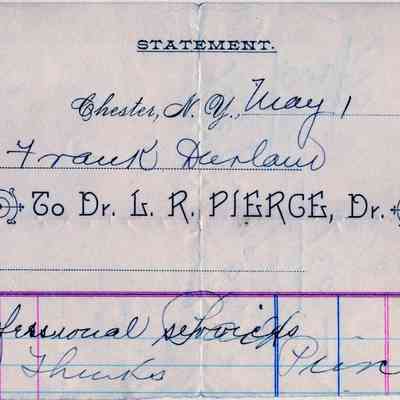 STATEMENT.
Chester, N. Y., May 1
Frank Durland
To Dr. L. R. PIERCE, Dr.
fessional services
Thanks